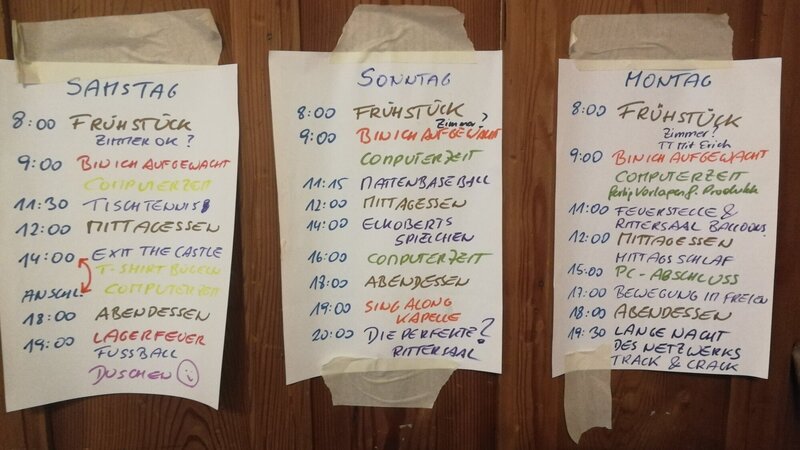 SAMSTAG
8:00 FRÜHSTÜCK
ZIMMER OK?
9:00 BIN ICH AUFGEWACHT
COMPUTERZEIT
11:30 TISCHTENNIS
12:00 MITTAGESSEN
14:00 EXIT THE CASTLE
T-SHIRT BÜGELN
ANSCHL. COMPUTERZEIT
18:00 ABENDESSEN
19:00 LAGERFEUER
FUSSBALL
DUSCHEN
SONNTAG
8:00 FRÜHSTÜCK
Zimmer?
9:00 BIN ICH AUFGEWACHT
COMPUTERZEIT
11:15 MATTENBASEBALL
12:00 MITTAGESSEN
14:00 ECKOBERTS
SPIELCHEN
16:00 COMPUTERZEIT
18:00 ABENDESSEN
19:00 SING ALONG
KAPELLE
20:00 DIE PERFEKTE?
RITTERSAAL
MONTAG
8:00 FRÜHSTÜCK
Zimmer?
TT Mit Erich
9:00 BIN ICH AUFGEWACHT
COMPUTERZEIT
fertig Vorlagen f. Produkte
11:00 FEUERSTELLE &
RITTERSAAL
12:00 MITTAGESSEN
MITTAGSSCHLAF
15:00 PC-ABSCHLUSS
17:00 BEWEGUNG IM FREIEN
18:00 ABENDESSEN
19:30 LANGE NACHT
DES NETZWERKS
TRACK & CRACK